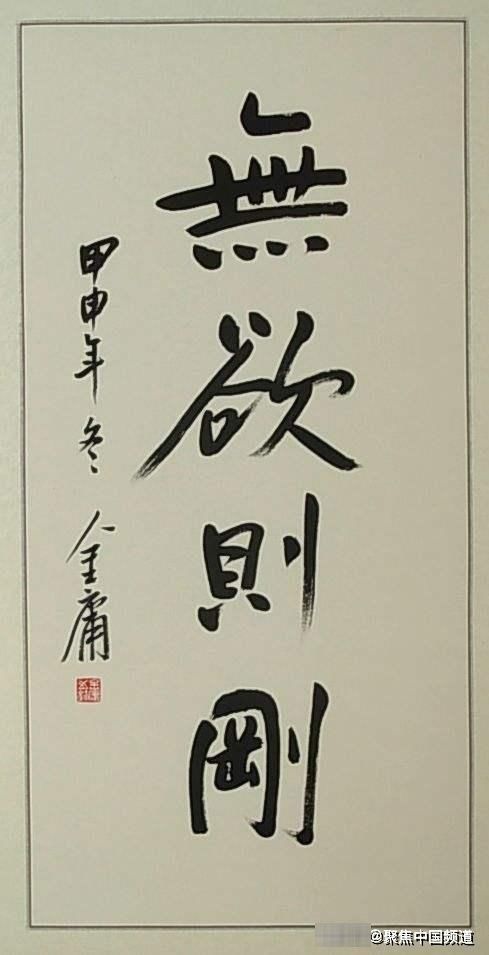 無欲則剛
甲申年冬 金庸
@聚焦中国频道